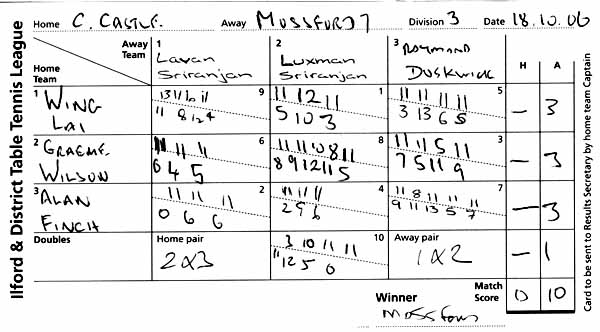 Ilford & District Table Tennis League
Home C. CASTLE. Away MOSSFORD 7 Division 3 Date 18.10.06
Away Team
Home Team
1 Lavan Sriranjan
2 Luxman Sriranjan
3 RAYMOND DUSKWICK
H A
1 WING LAI
9
13 11 6 11
11 8 12 4
1
11 12 11
5 10 3
5
11 11 11 11
3 13 6 5
– 3
2 GRAEME WILSON
6
11 11 11
6 4 5
8
11 11 10 8 11
8 9 12 11 5
3
11 11 5 11
7 5 11 9
– 3
3 ALAN FINCH
2
11 11 11
0 6 6
4
11 11 11
2 9 6
7
11 8 11 11 11
9 11 13 5 7
– 3
Doubles
Home pair
2x3
10
3 10 11 11
11 12 5 0
Away pair
1x2
– 1
Winner
Match Score
0 10
Card to be sent to Results Secretary by home team Captain